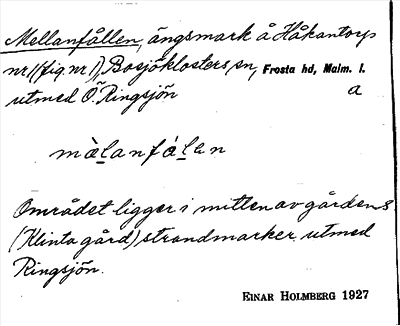 Mellanfållen, ängsmark å Håkantorp
nr 1 (fig. nr 1), Bosjöklosters sn, Frosta hd, Malm. l.
utmed Ö. Ringsjön a
mèlanfálen
Området ligger i mitten av gårdens
(Klinta gård) strandmarker utmed
Ringsjön.
EINAR HOLMBERG 1927